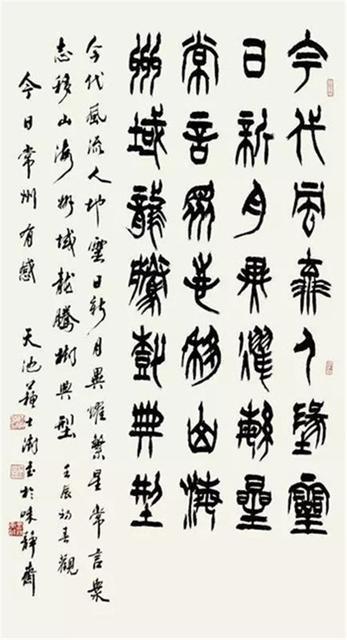 今代風流人地靈
日新月異耀繁星
常言眾志移山海
州域龍騰樹典型
今代風流人地靈日新月異耀繁星常言眾
志移山海州域龍騰樹典型壬辰初春觀
今日常州有感 天池蘇士澍書於味靜齋